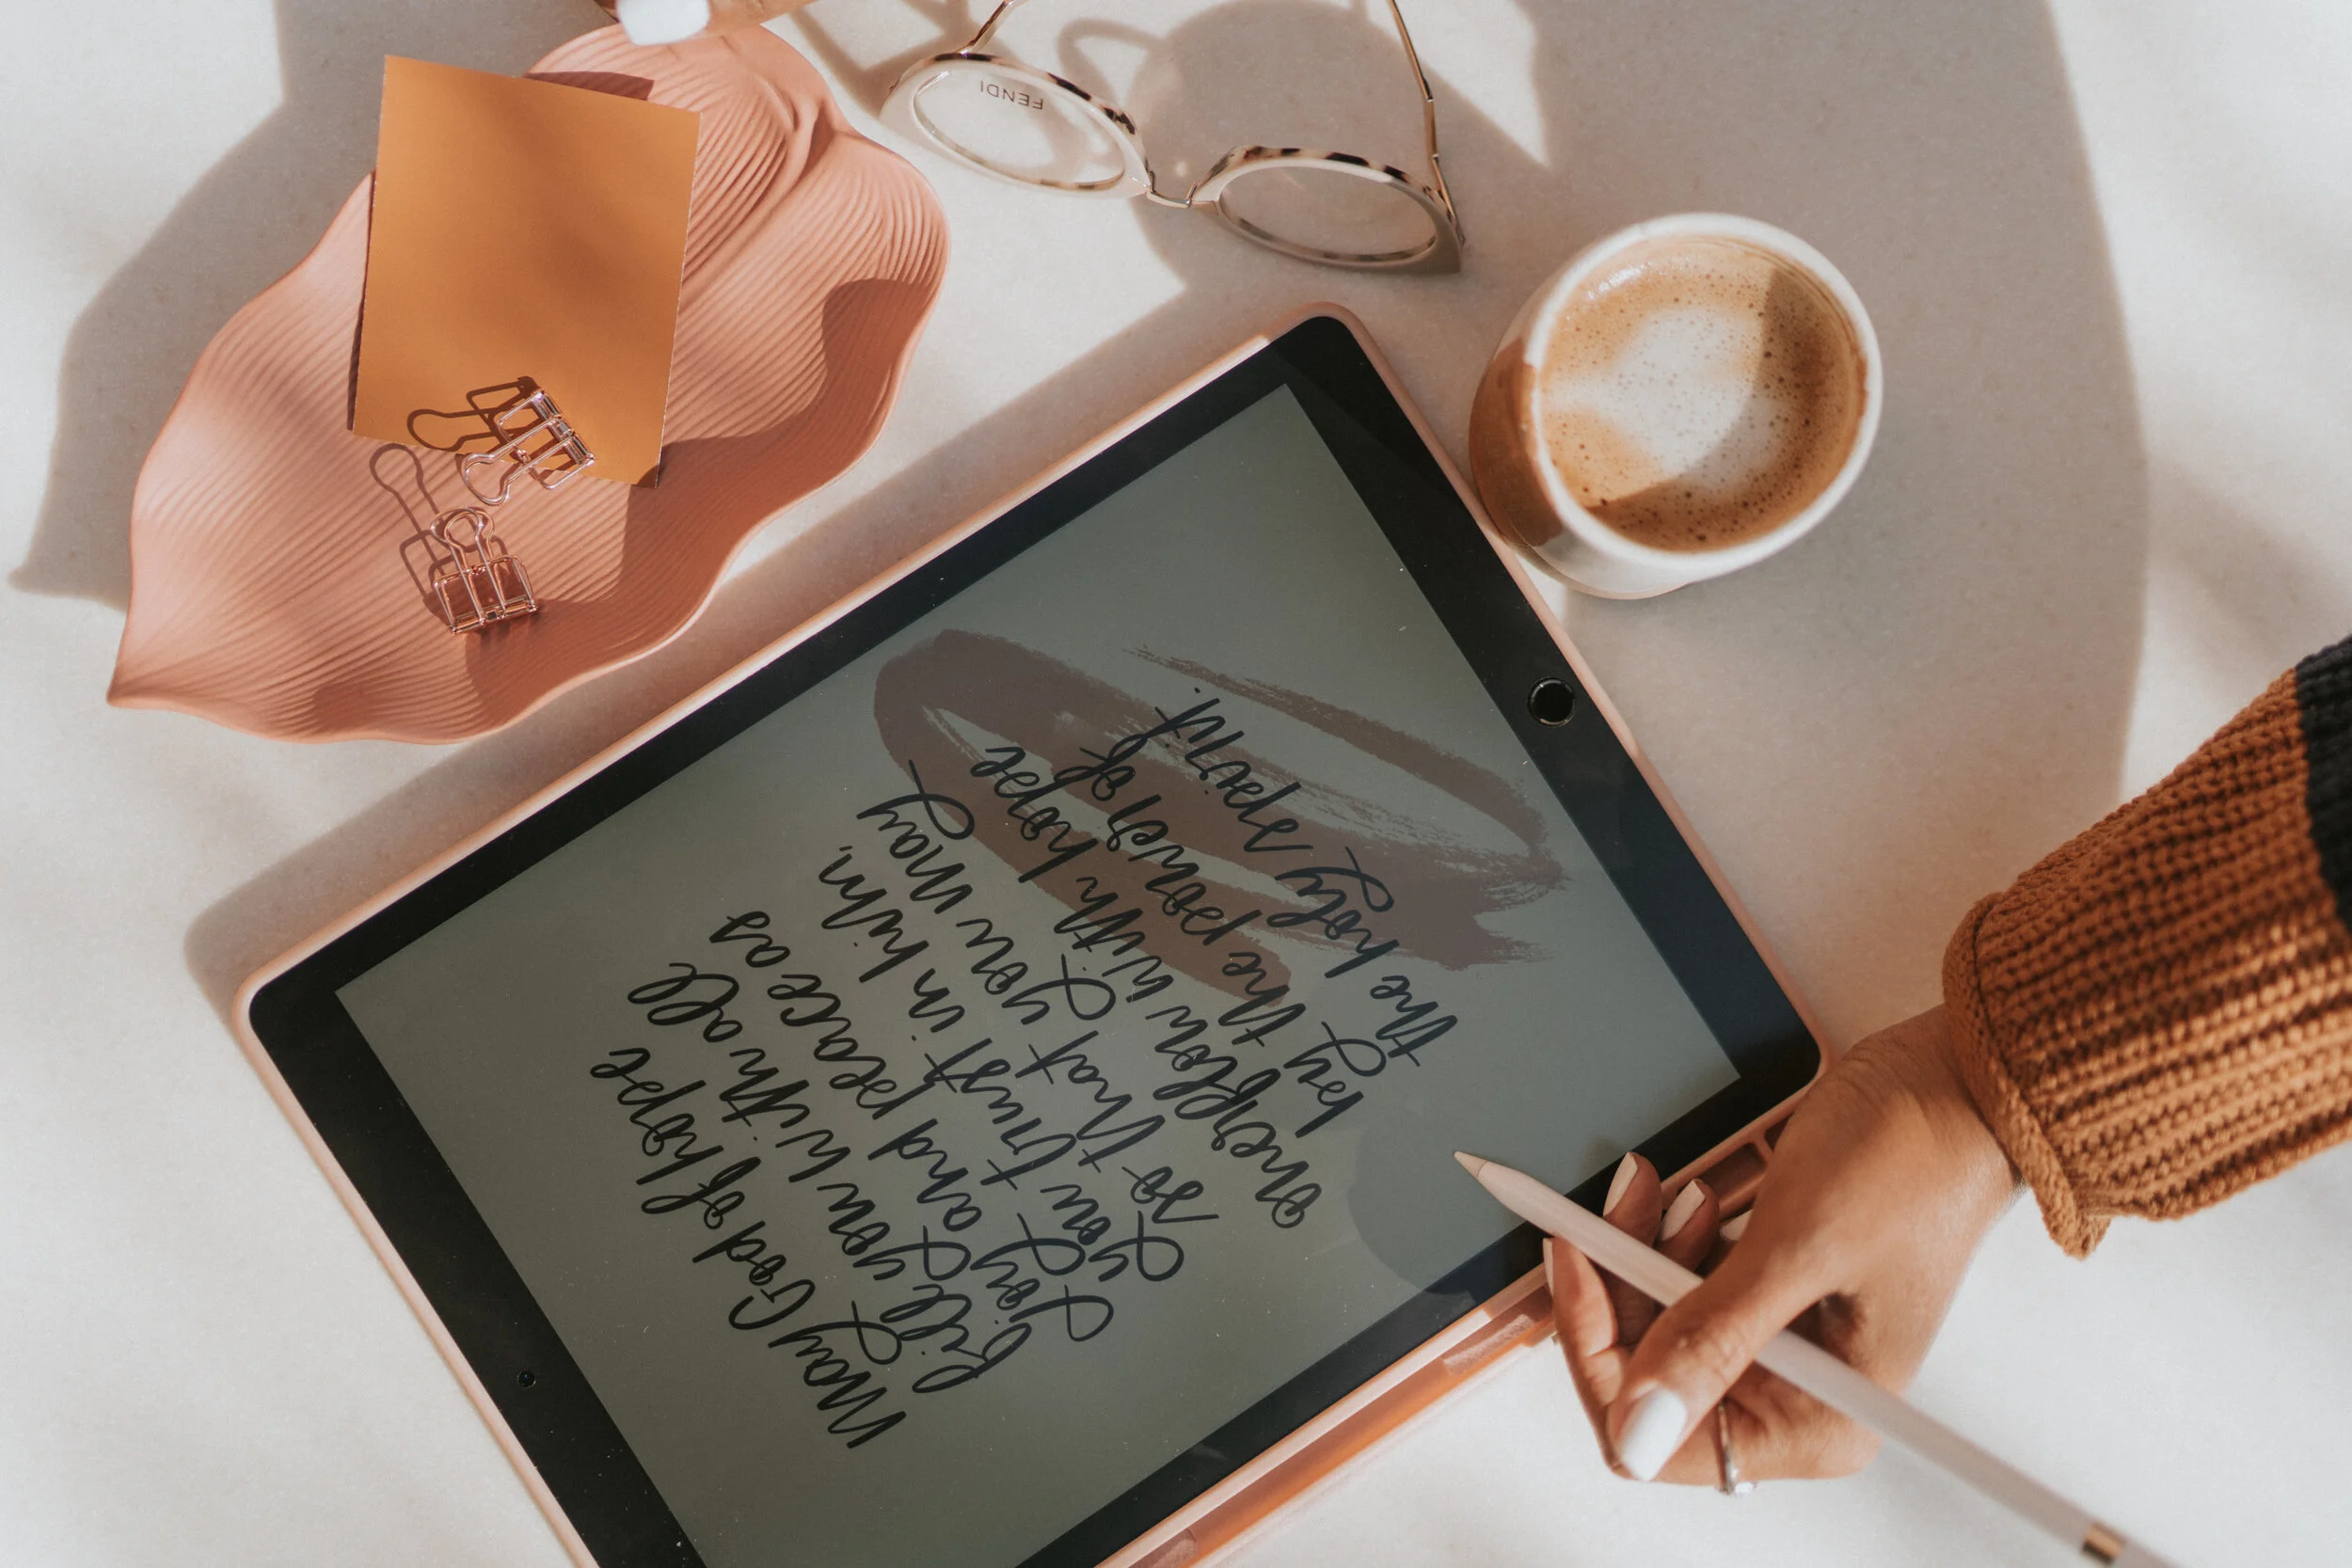 May God of hope
fill you with all
joy and peace as
you trust in him,
so that you may
overflow with hope
by the power of
the holy spirit.
FENDI